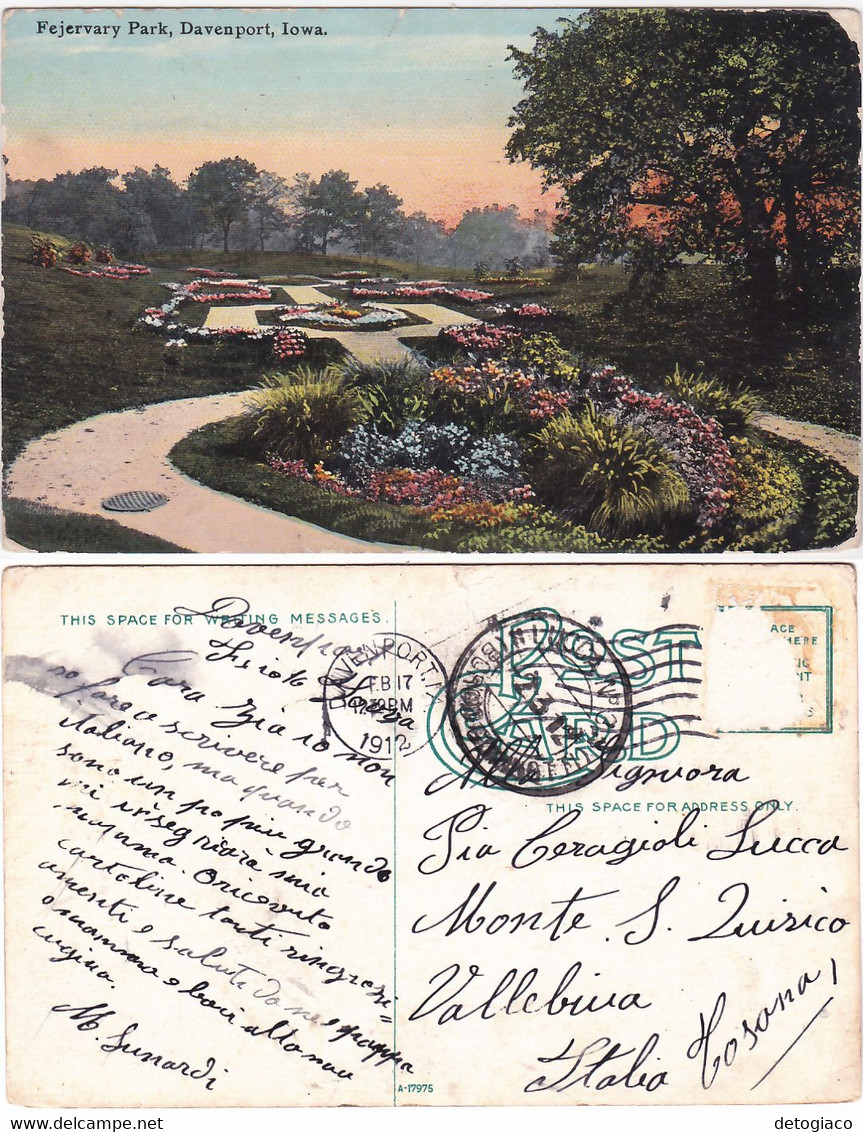 Fejervary Park, Davenport, Iowa.
THIS SPACE FOR WRITING MESSAGES.
Davenport
Cara Zia io non
so fare a scrivere per
italiano, ma quando
sono un po piu grande
mi insegnera mia
mamma. O ricevuto
cartoline tanti ringrazi=
amenti e saluti da me pappa
e mamma e baci alla mia
cugina.
M. Lunardi
DAVENPORT, IA
FEB 17
PM
1912
POST CARD
ACE
HERE
THIS SPACE FOR ADDRESS ONLY.
Alla Signuora
Pia Ceragioli Lucca
Monte S. Quirico
Vallebiua
Italia Tosana,
A-17975
detogiaco